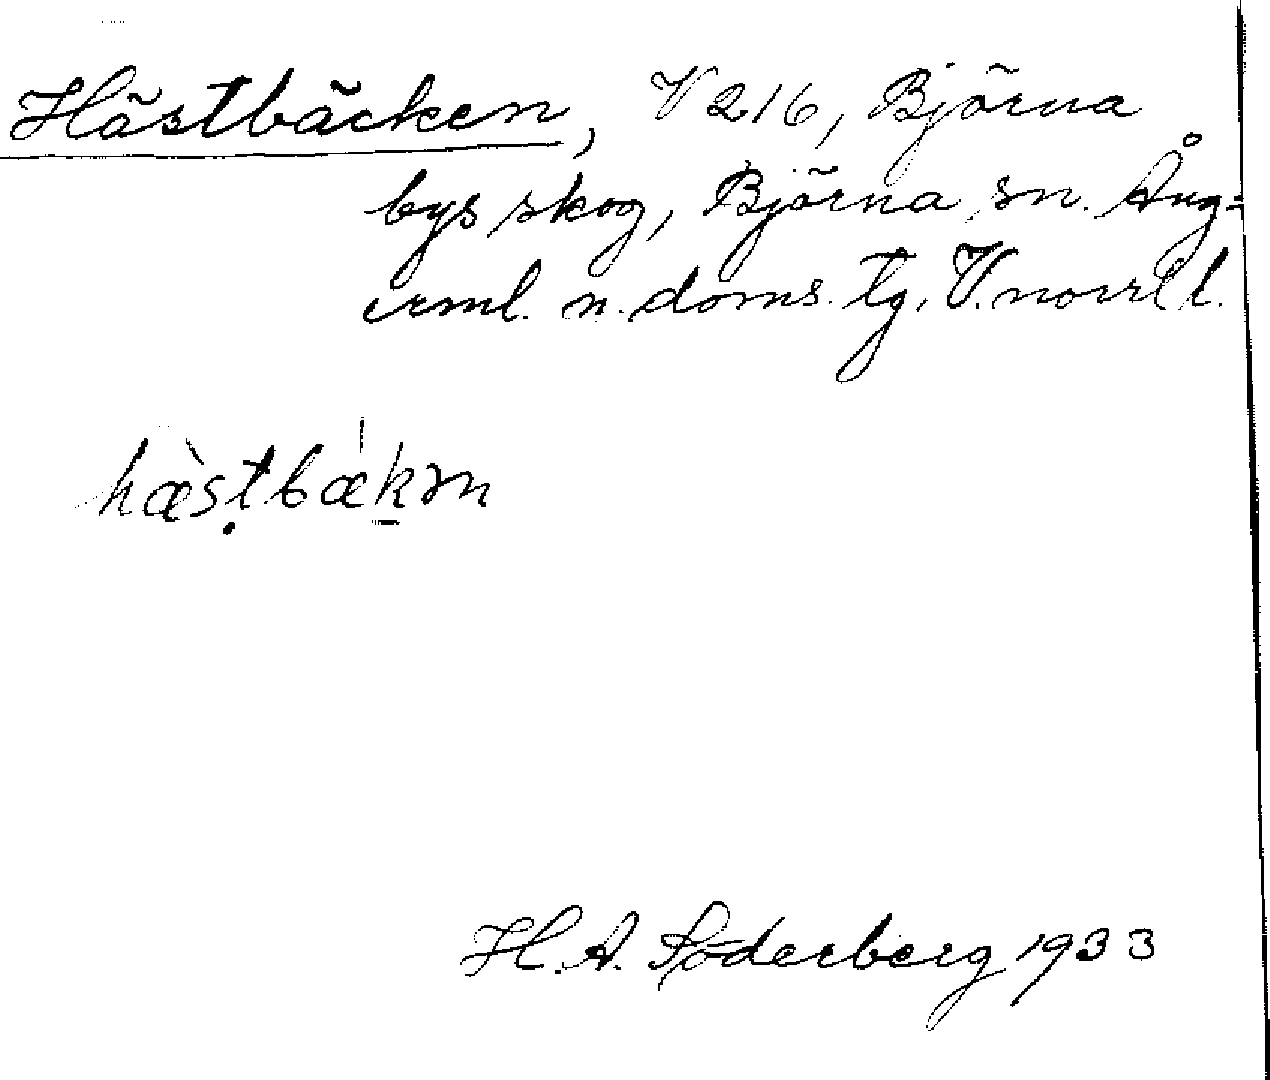 Hästbäcken, V 216, Björna
bys skog, Björna sn. Ång=
erml. n. doms. tg. V. norrl l.
hæ̀sṭbæ̍k̲ən
H. A. Söderberg 1933